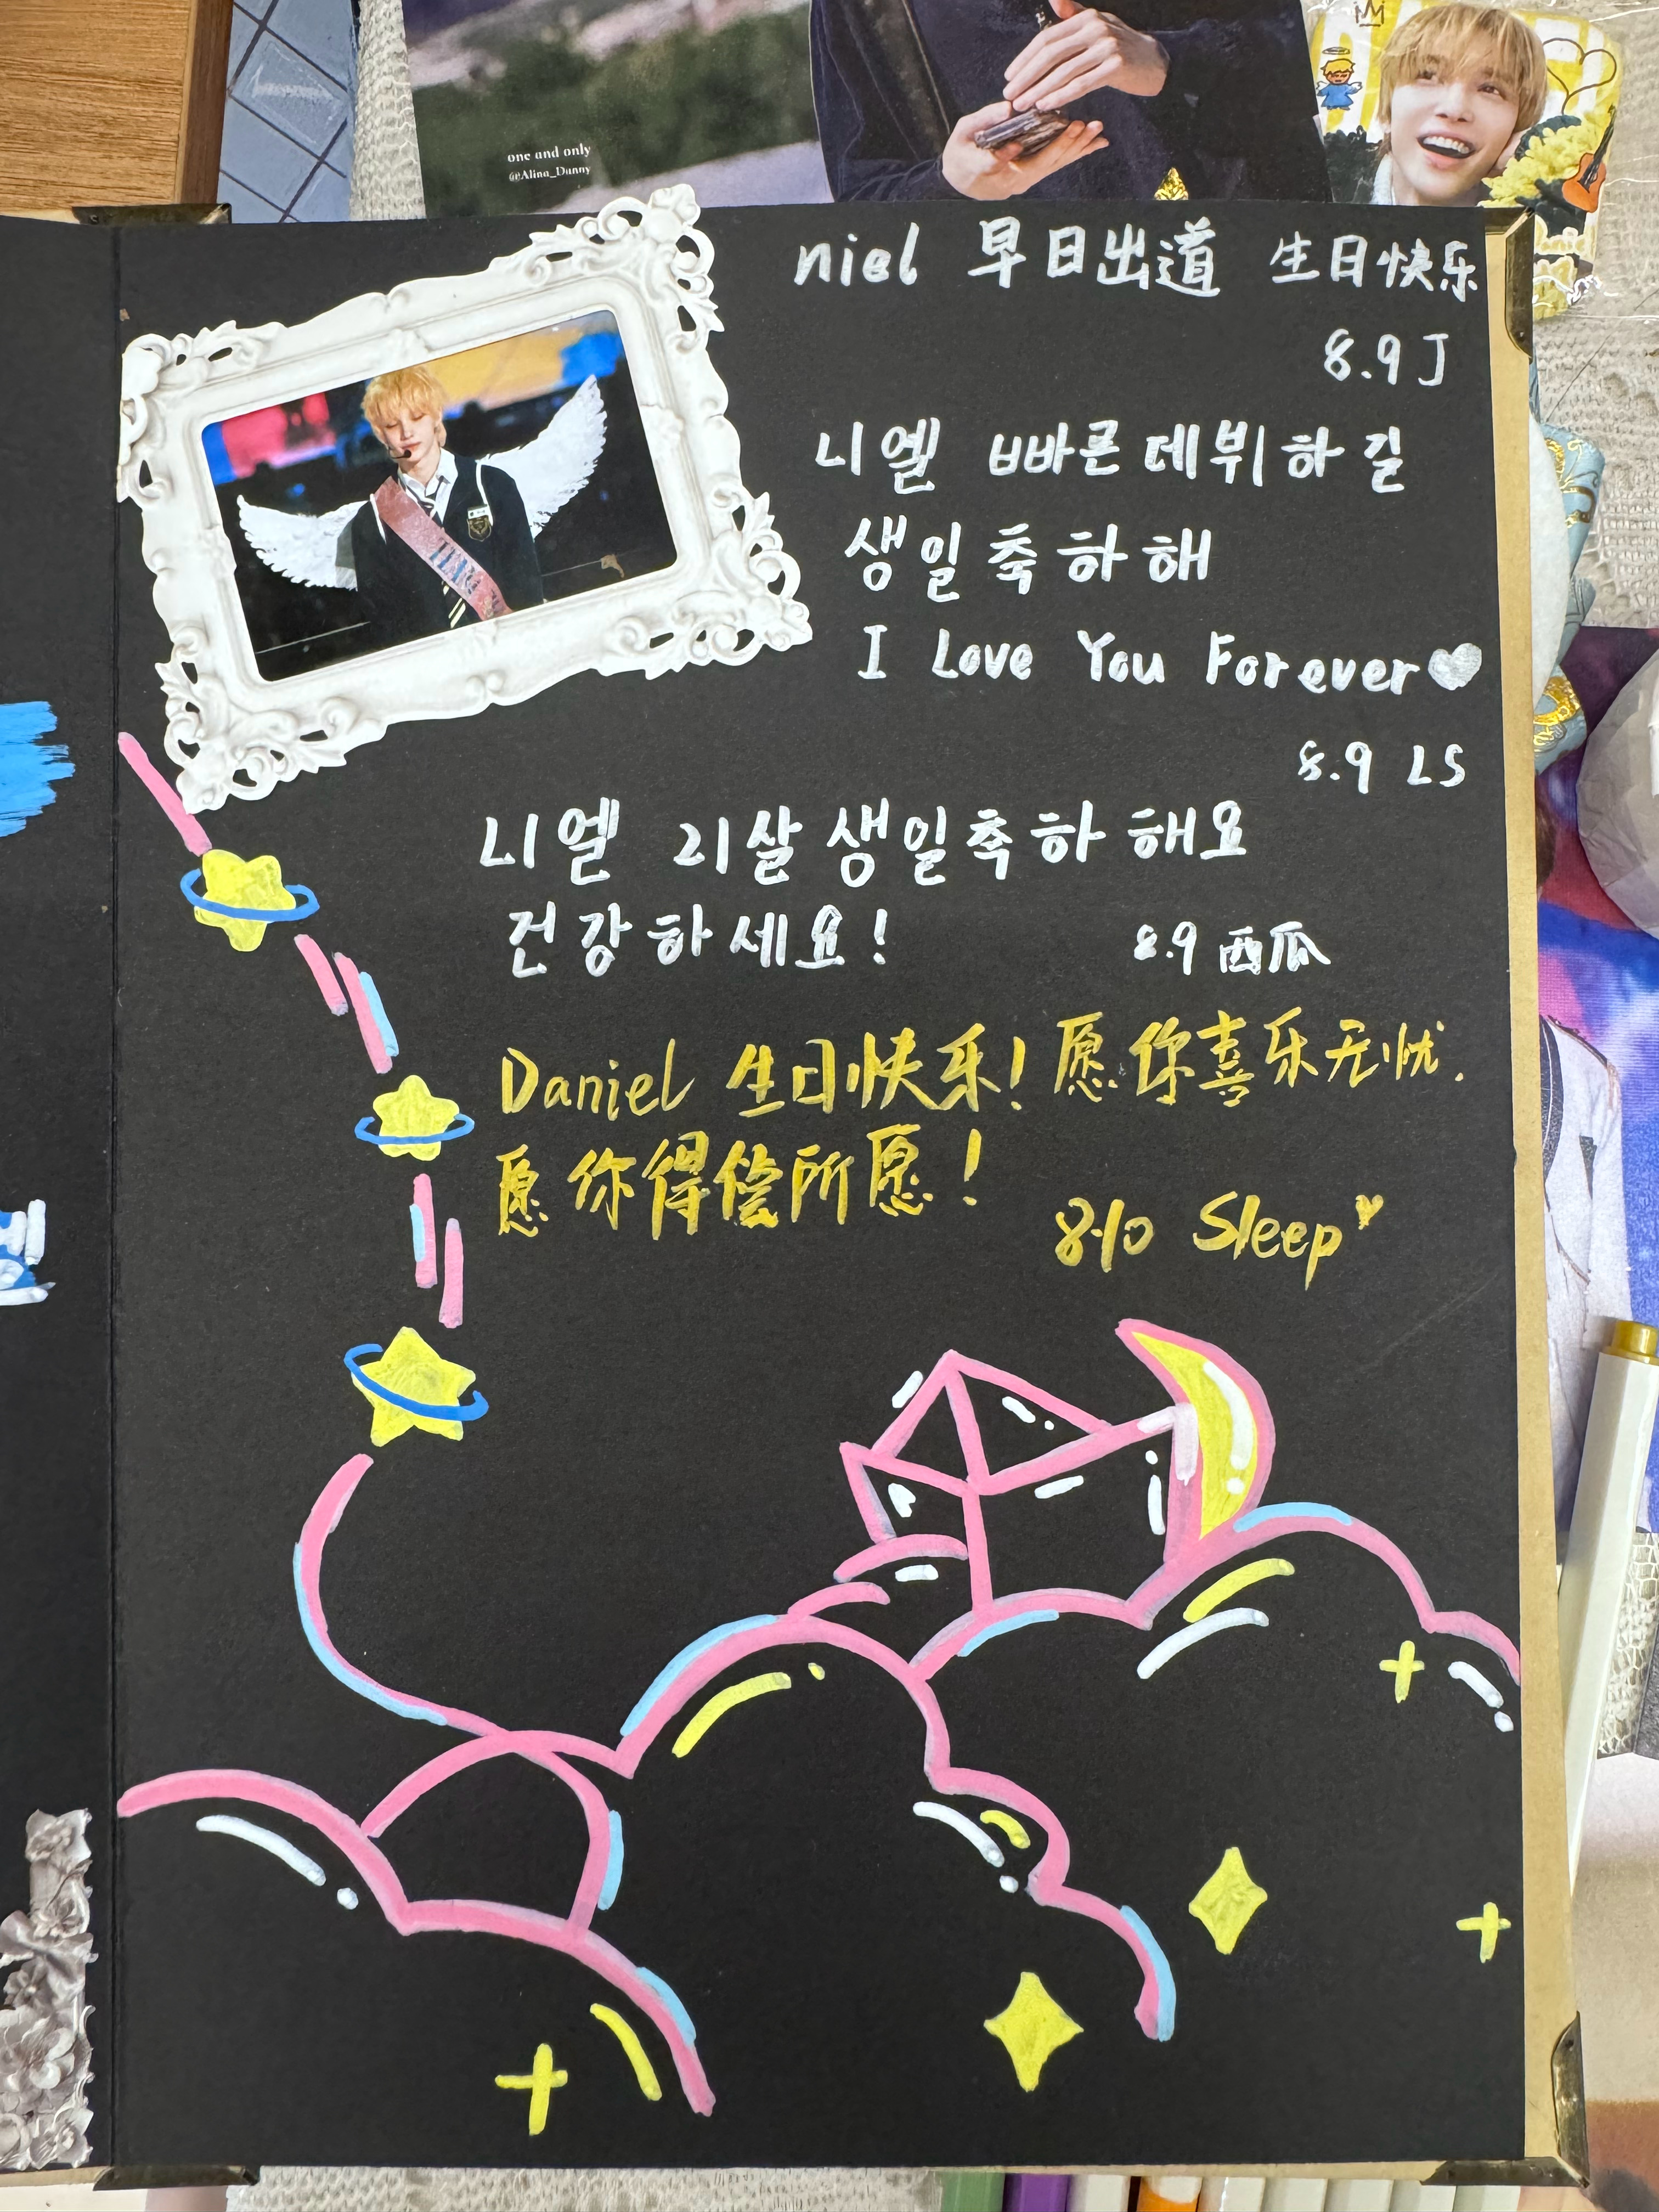 one and only
@Alina_Danny
niel 早日出道 生日快乐
8.9 J
니엘 빠른데뷔하길
생일축하해
I Love You Forever
8.9 LS
니엘 21살생일축하해요
건강하세요!
8.9 西瓜
Daniel 生日快乐! 愿你喜乐无忧.
愿你得偿所愿!
8.10 Sleep